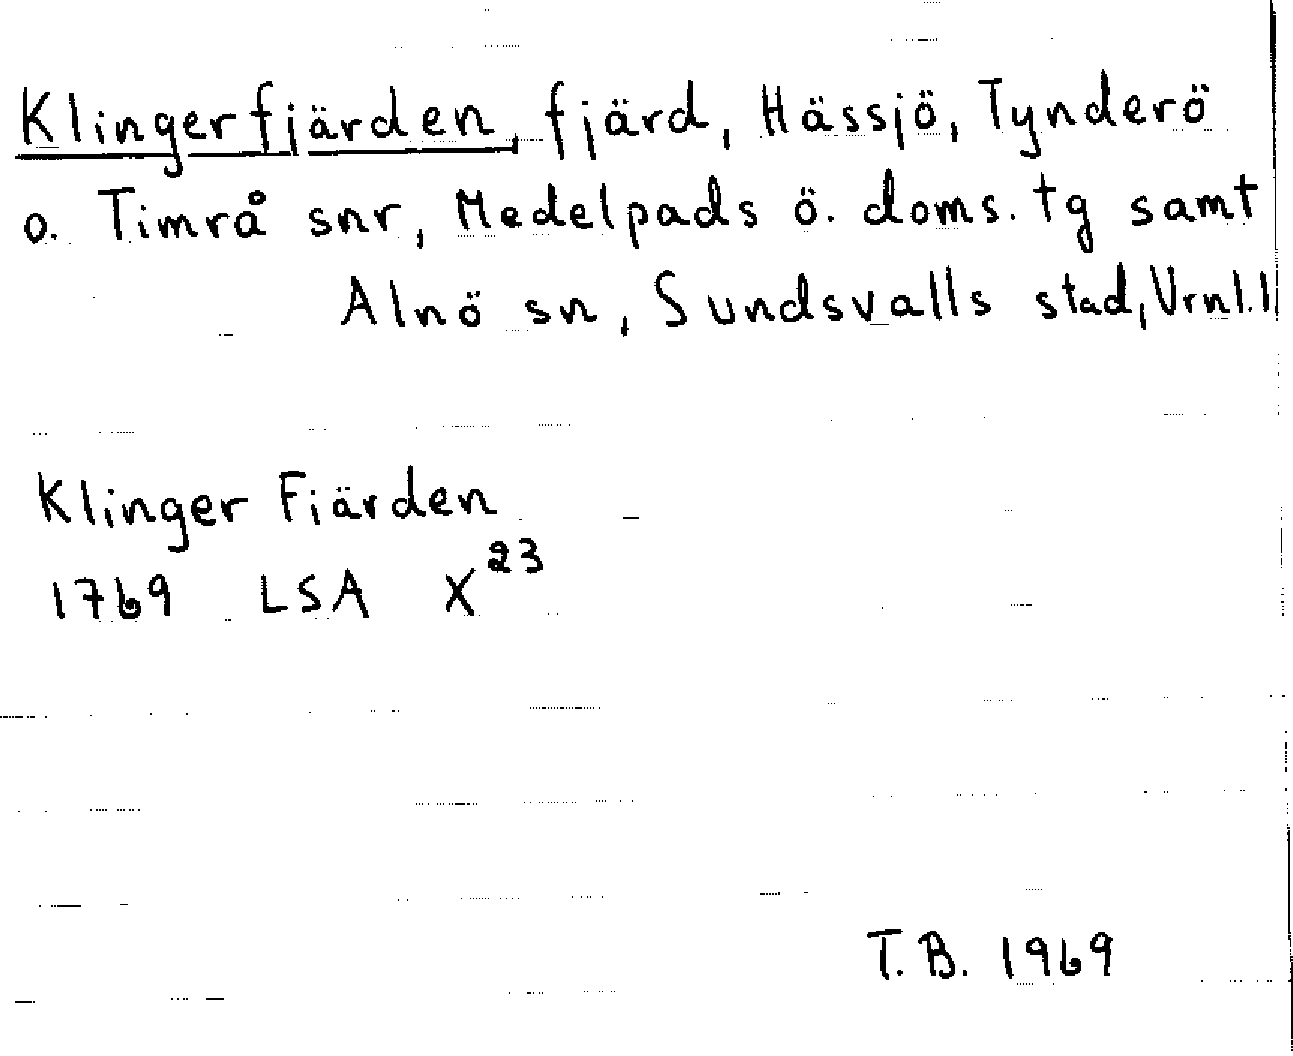 Klingerfjärden, fjärd, Hässjö, Tynderö
o. Timrå snr, Medelpads ö. doms. tg samt
Alnö sn, Sundsvalls stad, Vrnl. l
Klinger Fiärden
1769 LSA X²³
T.B. 1969